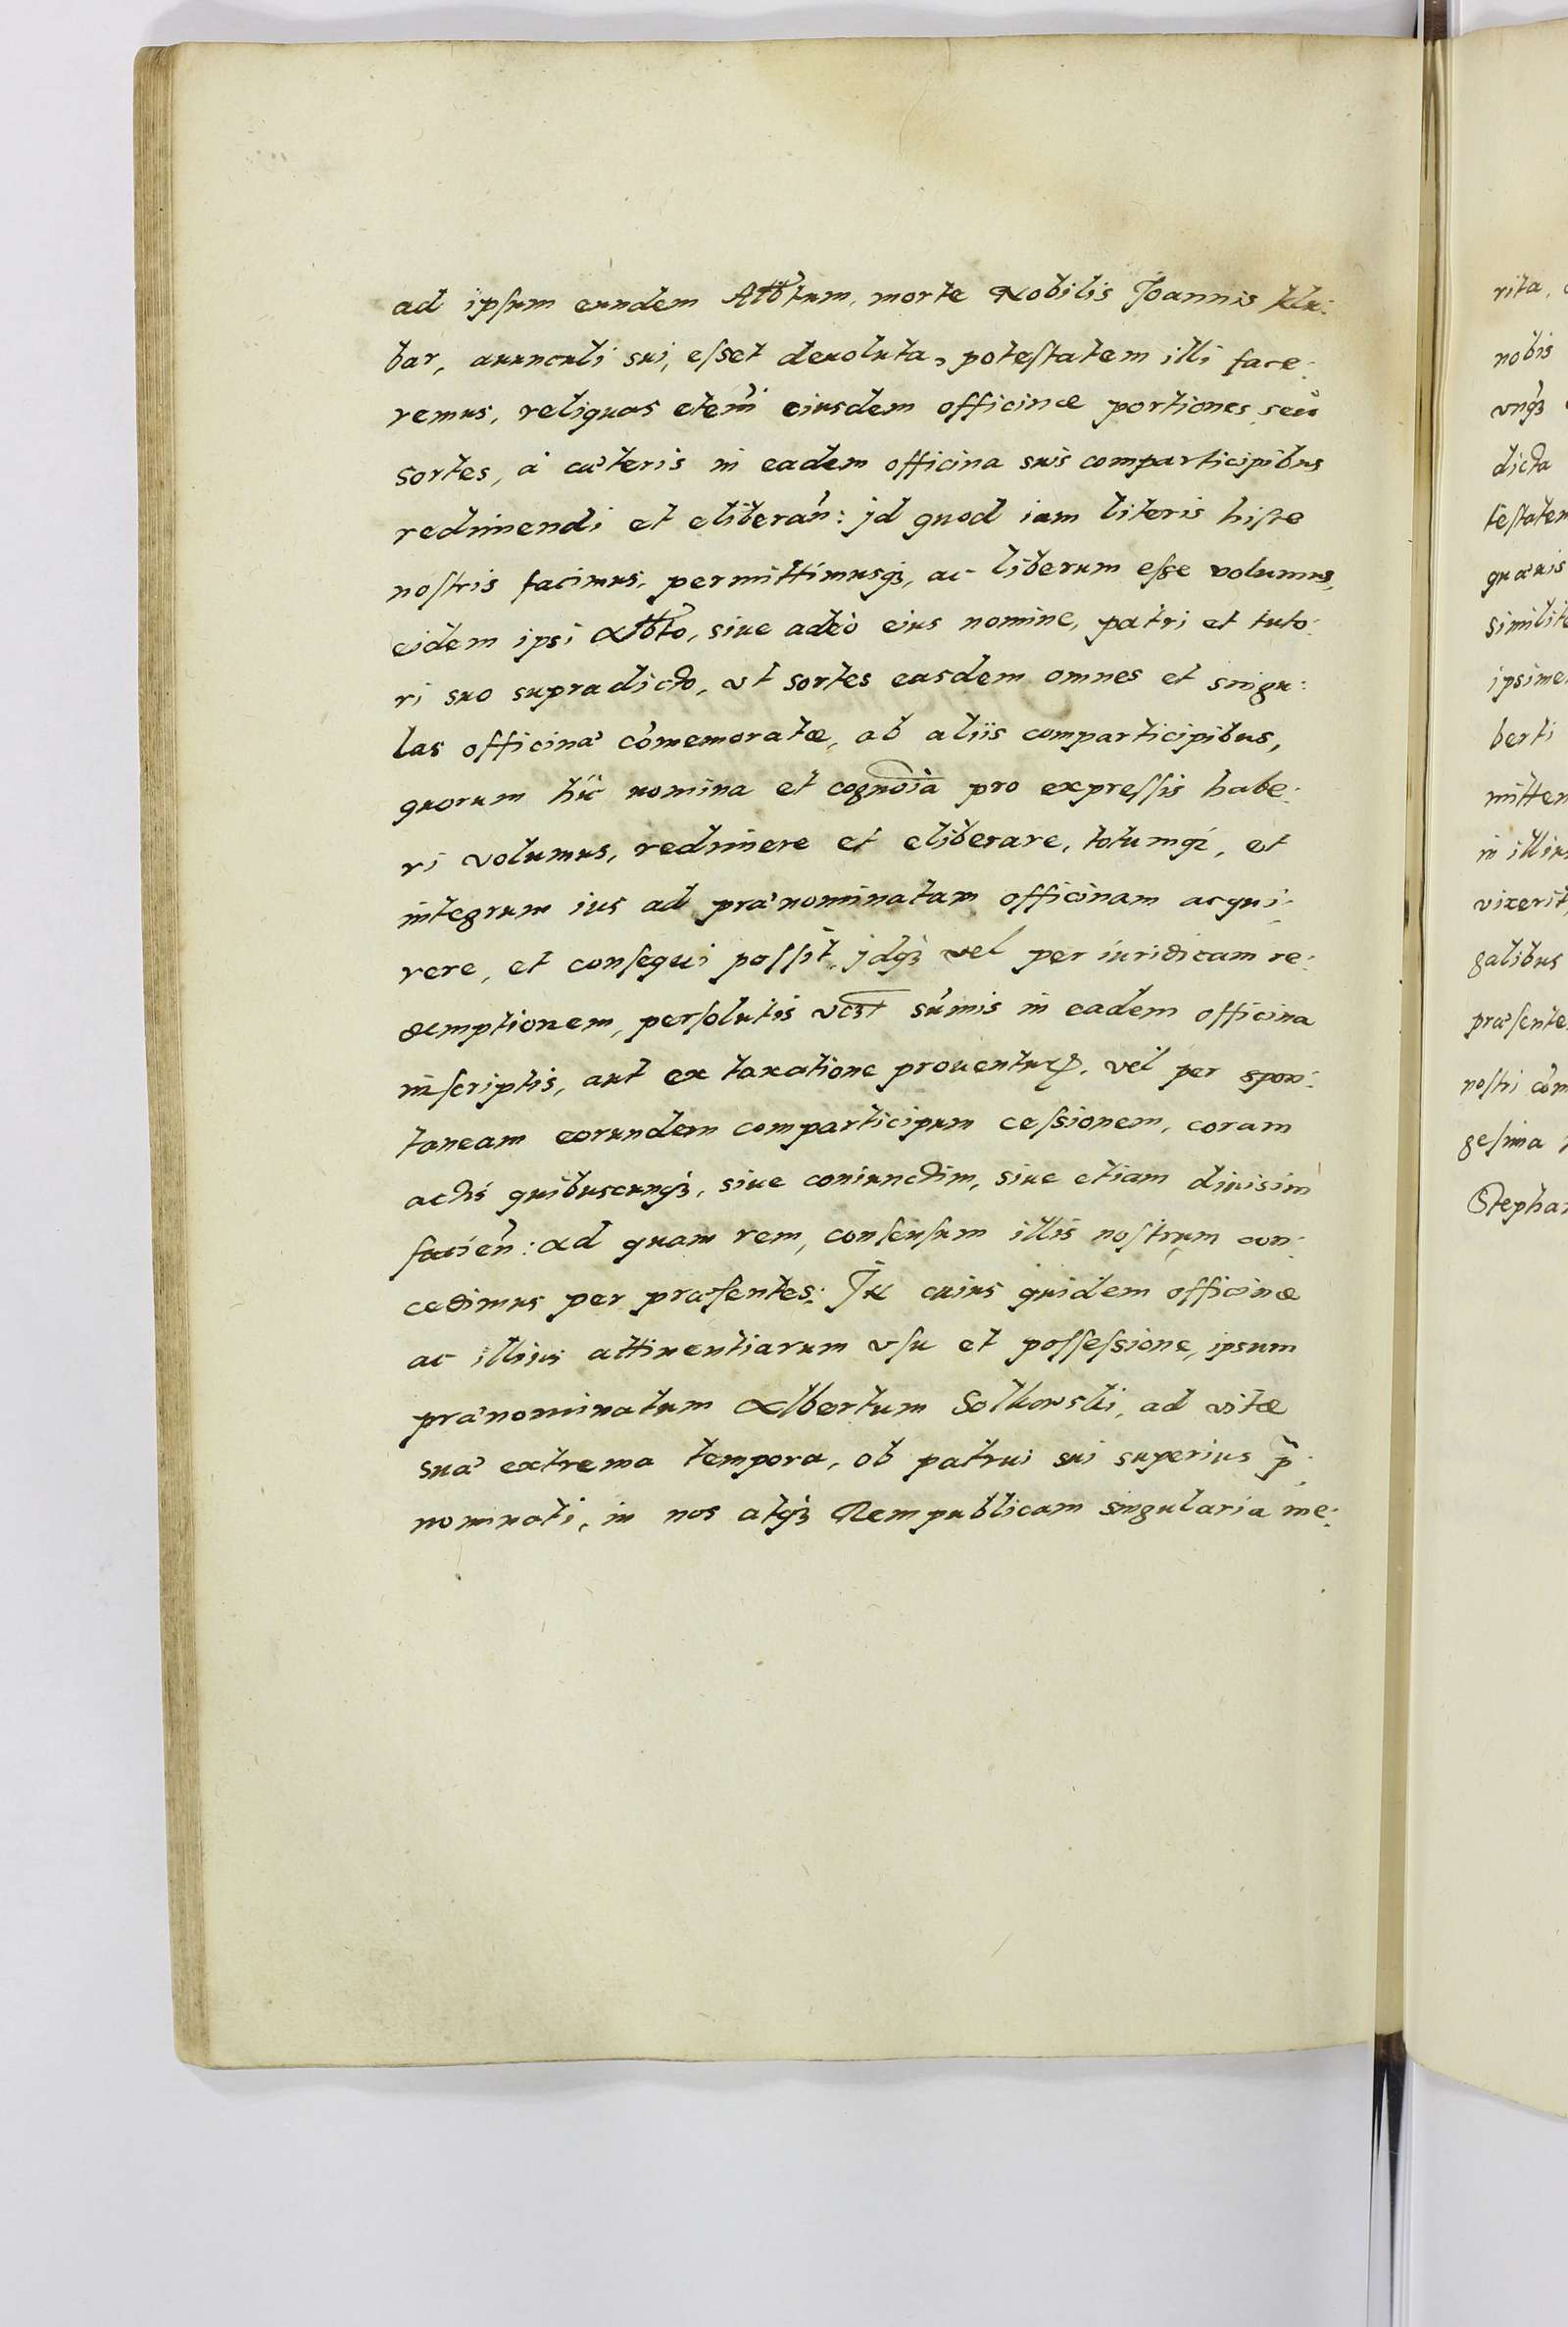 ad ipsum eundem Albtum, morte Nobilis Joannis Klu:
bar, auunculi sui, esset deuoluta, potestatem illi face:
remus, reliquas etem̃ eiusdem officinæ portiones, seu
sortes, à cæteris in eadem officina suis comparticipibus
redimendi et eliberañ: jd quod iam literis hisce
nostris facimus, permittimusq3, ac liberum esse volumus,
eidem ipsi Albto, siue adeò eius nomine, patri et tuto:
ri suo supradicto, vt sortes easdem omnes et singu:
las officinæ com̃emoratæ, ab aliis comparticipibus,
quorum hic nomina et cognoĩa pro expressis habe:
ri volumus, redimere et eliberare, totumq3, et
integrum ius ad prænominatam officinam acqui:
rere, et consequi possit, jdq3 vel per iuridicam re:
demptionem, persolutis vc3t sum̃is in eadem officina
inscriptis, aut ex taxatione prouentuꝝ, vel per spon:
taneam eorundem comparticipum cessionem, coram
actis quibuscunq3, siue coniunctim, siue etiam diuisim
facieñ: ad quam rem, consensum illis nostrum con:
cedimus per præsentes: In cuius quidem officinæ
ac illius attinentiarum vsu et possessione, ipsum
prænominatum Albertum Solkowski, ad vitæ
suæ extrema tempora, ob patrui sui superius p̃:
nominati, in nos atq3 Rempublicam singularia me:
rita,
nobis
vnq3
dicta
testatem
quæuis
similite
ipsime
berti
mitten
in illius
vixerit,
galibus
præsente
nostri com̃
gesima
Stephan